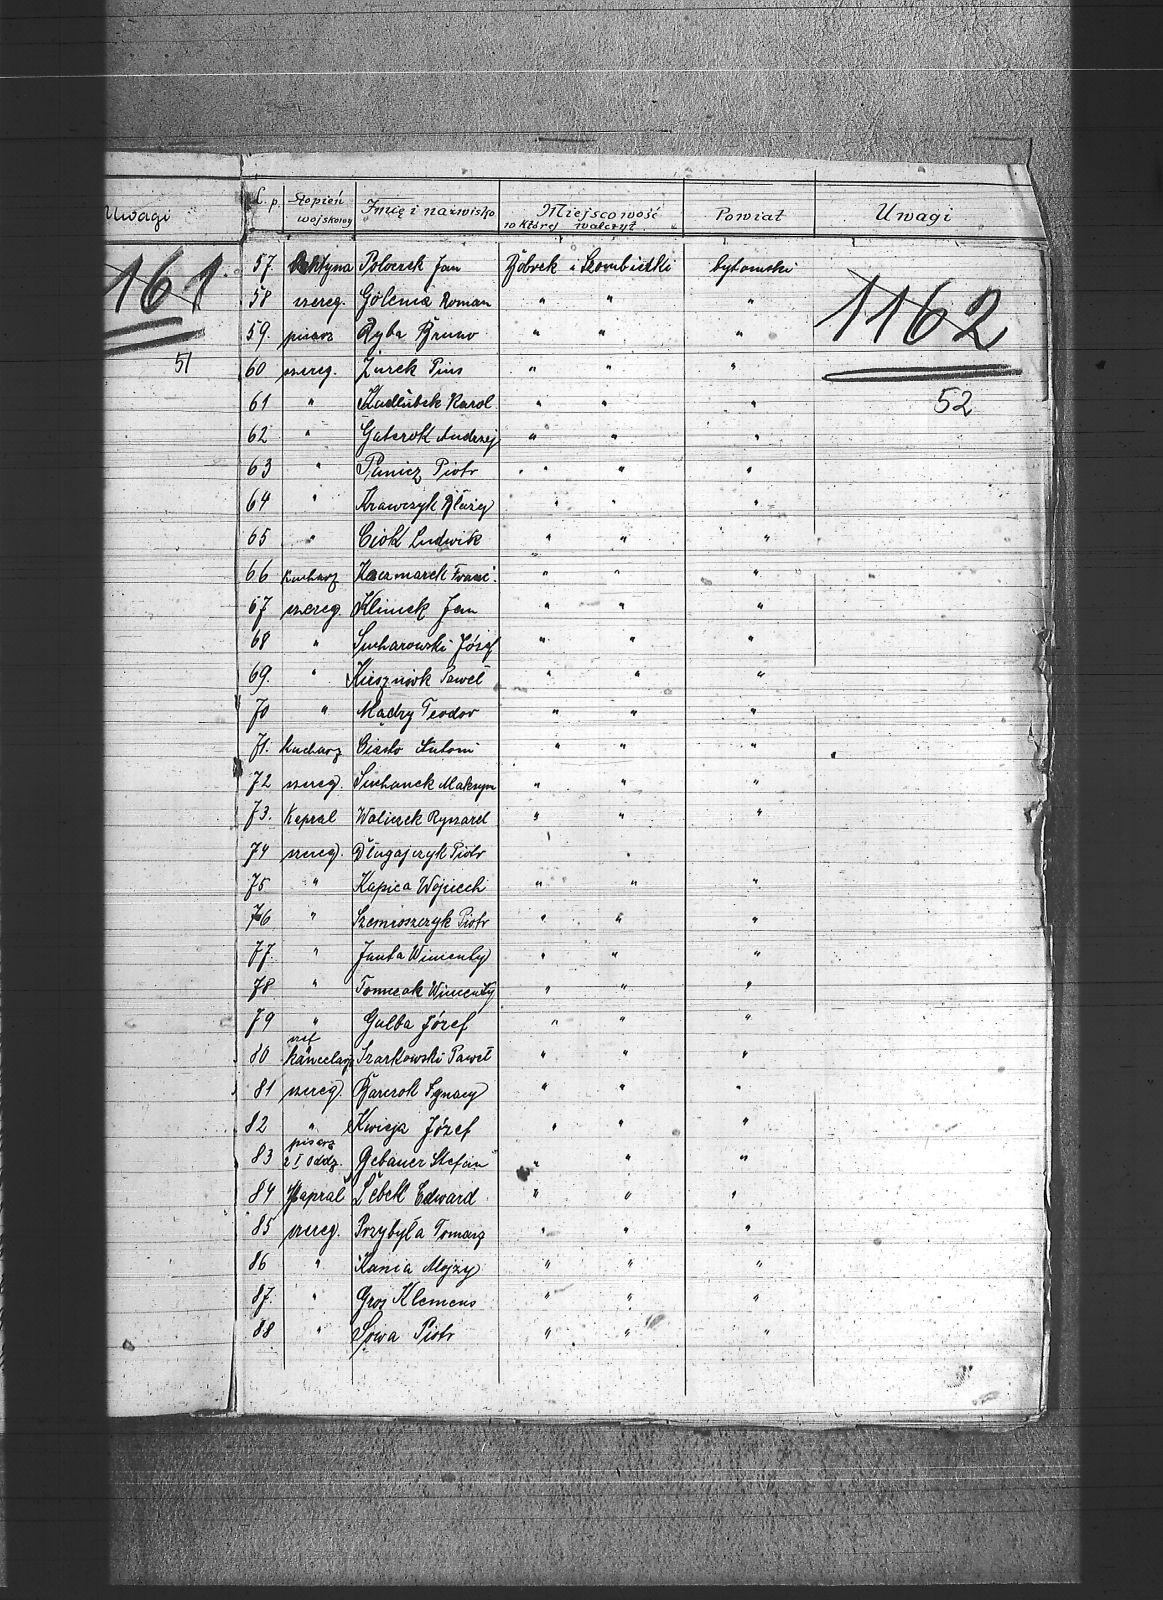 Uwagi
161
51
L. p. Stopień wojskowy Imię i nazwisko Miejscowość w której walczył Powiat Uwagi
1162
52
57. Polaczek Jan Bobrek i Szombierki bytomski
58 szereg. Golenia Roman " " "
59. pisarz Ryba Bruno " " "
60 szereg. Żurek Pius " " "
61 " Kadłubek Karol " " "
62 " Gatzrok Andrzej " " "
63 " Piotr " " "
64 " Krawczyk Błażej " " "
65 " Ciok Ludwik " " "
66 kucharz Kaczmarek Franc. " " "
67 szereg. Klimek Jan " " "
68 " Sucharowski Józef " " "
69. " Kusznivk Paweł " " "
70 " Mądry Teodor " " "
71. Kucharz Ciasto Antoni " " "
72 szereg. Suchanek Maksym " " "
73. Kapral Waliczek Ryszard " " "
74 szereg. Długajczyk Piotr
75 " Kapica Wojciech " " "
76 " Szemioszczyk Piotr " " "
77. " Janta Wincenty " " "
78 " Tomczak Wincenty " " "
79 " Galba Józef " " "
80 szef kancelarji Szarkowski Paweł " " "
81 szereg. Barczok Ignacy " " "
82 " Kwieja Józef " " "
83 pisarz 2 I oddz. Gebauer Stefan " " "
84 Kapral Lebek Edward " " "
85 szereg. Przybyła Tomasz " " "
86 " Kania Alojzy " " "
87. " Gros Klemens " " "
88 " Sowa Piotr " " "